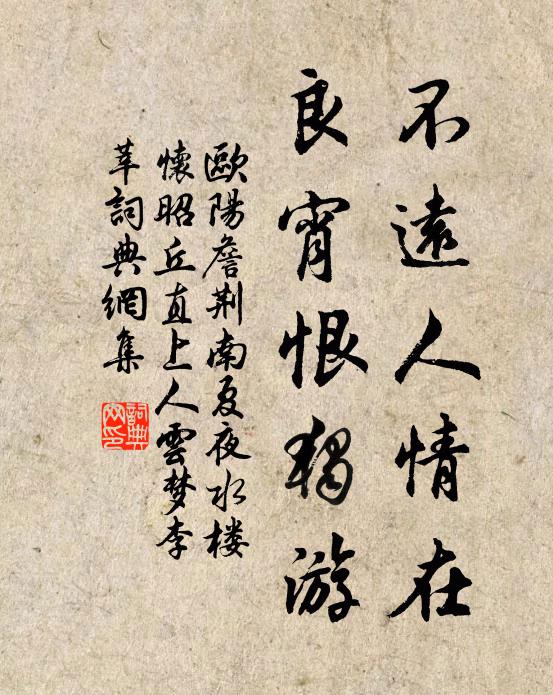 不遠人情在
良宵恨獨游
歐陽詹荆南夏夜水楼
懷昭丘直上人雲梦李
莘詞典網集
詞典
网印